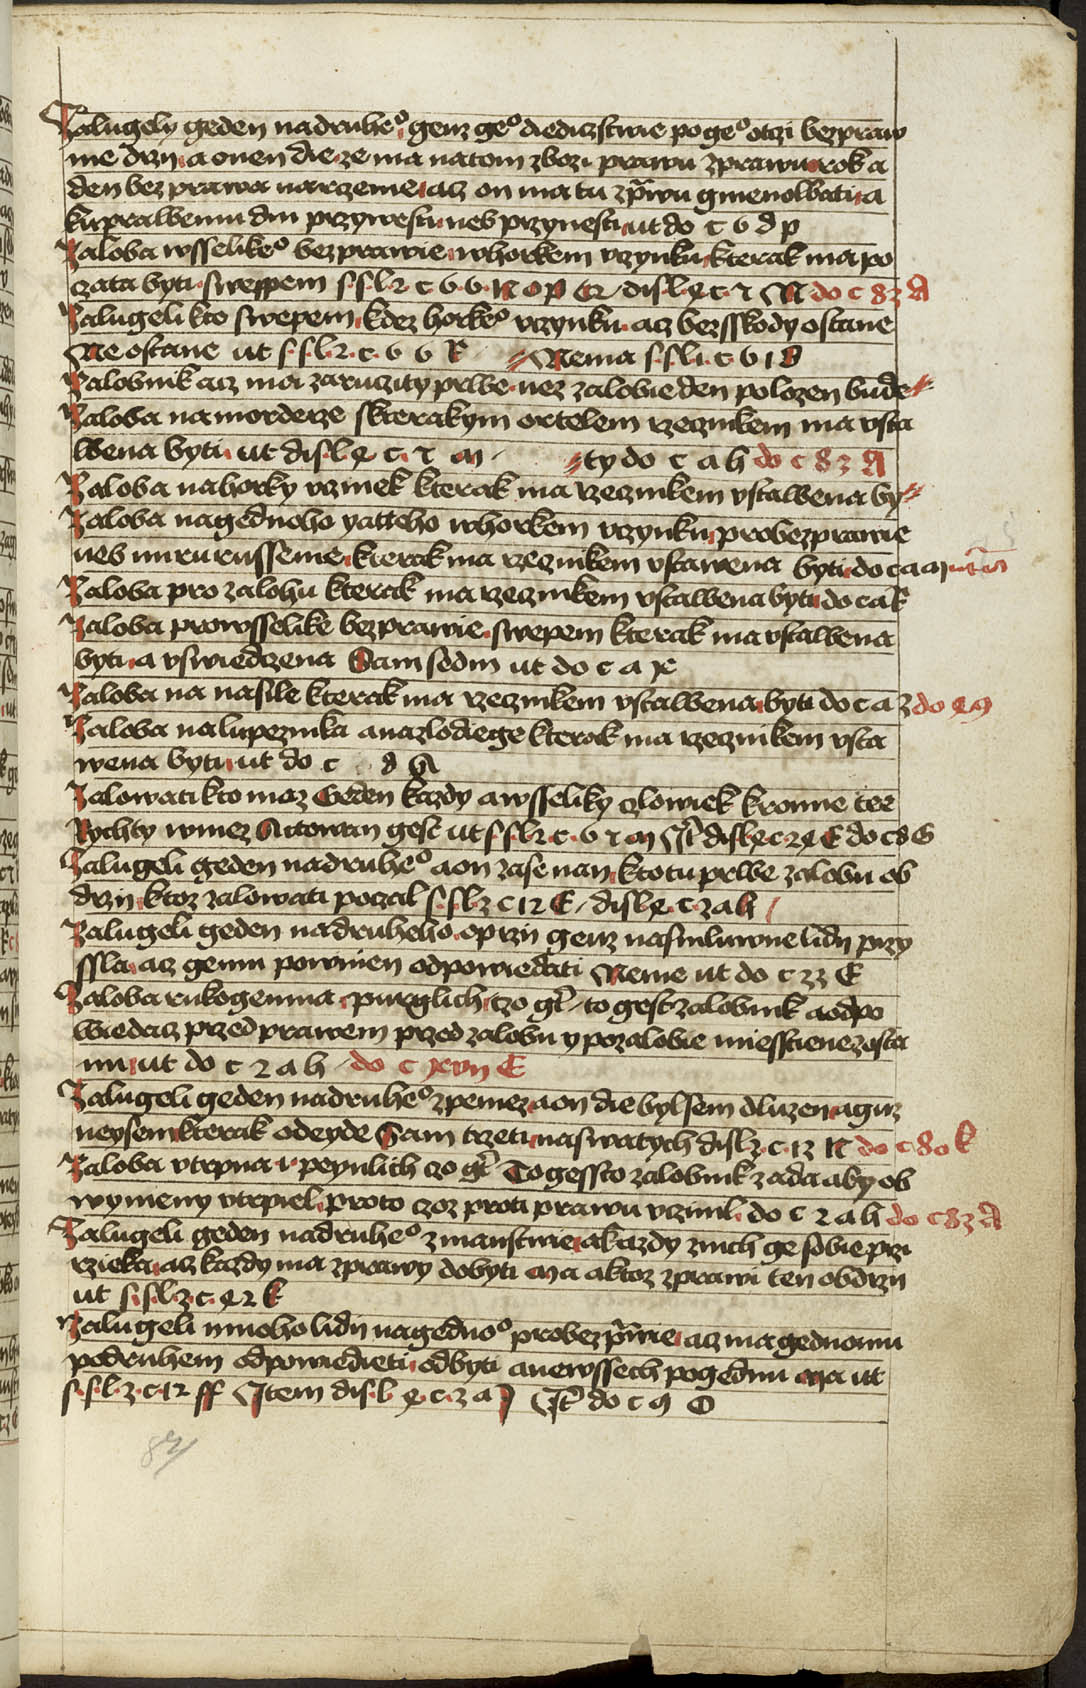 Zalugely geden nadruheº genz geº diediczstwie po geº otczi bezpraw
nie drzij a onen die ze ma na tom zbozi prawu zprawu rok a
den bez prawa narzeme acz on ma tu zp̃wu gmenowati a
ku prawemu dni przywesti neb przynesti ut do c 6 d p
Zaloba wsselikeº bezprawie whorkem vczynku kterak ma po
czata byti swepem s.s.l.2 c 6 6 N do c 83 A
Zalugeli kto swepem kdez horkeº vczynku acz bez sskody ostane
Neostane ut s.s.l.2.c.6 6 K Nema s.sl1.c.6 18
Zalobnik acz ma zaruczity prwe nez zalobie den polozen bude
Zaloba na morderze skterakym ortelem rzecznikem ma vsta
wena byti ut dis.l.4 c. 7 m ty do c a h do c 83 A
Zaloba nahorky vczinek kterak ma rzecznikem vstawena by
Zaloba nagednoho yatteho whorkem vczynku probezprawie
neb mirurusseme kterak ma rzecznikem vstawena byti do c a q
Zaloba pro zalohu kterak ma rzecznikem vstawena byti do c a k
Zaloba prowsselike bezprawie swepem kterak ma vstawena
byti a vswiedczena Sam sedm ut do c a x
Zaloba na nasile kterak ma rzecznikem vstawena byti do c a z do 49
Zaloba nalupeznika anazlodiege kterak ma rzecznikem vsta
wena byti ut do c d
Zalowati kto moz Geden kazdy awsseliky czlowiek kromie tee
Rychty wniez Actowan gest ut s.s.l2.c.6 7 m do c 8 G
Zalugeli geden nadruheº aon zase nan kto tu prwe zalobu ob
drzij ktoz zalowati poczal s.sl.3 c 12 E disl4.c.2 a h
Zalugeli geden nadruheho oprzij genz nasmluwne lidij przy
ssla acz gemu powinen odpowiedati Neme ut do c 33 E
Zaloba rukogemna purglich czo gt̃ to gest zalobnik aodpo
wiedacz przed prawem przed zalobu y pozalobie miesstienezosta
nu ut do c 2 a h do c xvij E
Zalugeli geden nadruheº zpeniez aon die bylsem dluzen aguz
neysem kterak odeyde Sam trzeti naswatych disl3.c.12 N do c 80 k
Zaloba vtrpna peynlich czo gt̃ To gessto zalobnik zada aby ob
wymeny vtrpiel proto czoz proti prawu vczinil do c 2 a h do c 83 A
Zalugeli geden nadruheº zmanstwie akazdy znich ge sobie przi
rzieka acz kazdy ma zprawy dobyti ma aktoz zprawi ten obdrzij
ut s.s.l.3.c.42 k
Zalugeli mnoho lidij nagednoº probezp̃wie acz ma gednomu
podruhem odpowiedieti odbyti anewssech pogednu ma ut
s.s.l.3.c.12 ff Item dis.l 4.c.2 a J It̃ do c 9 O